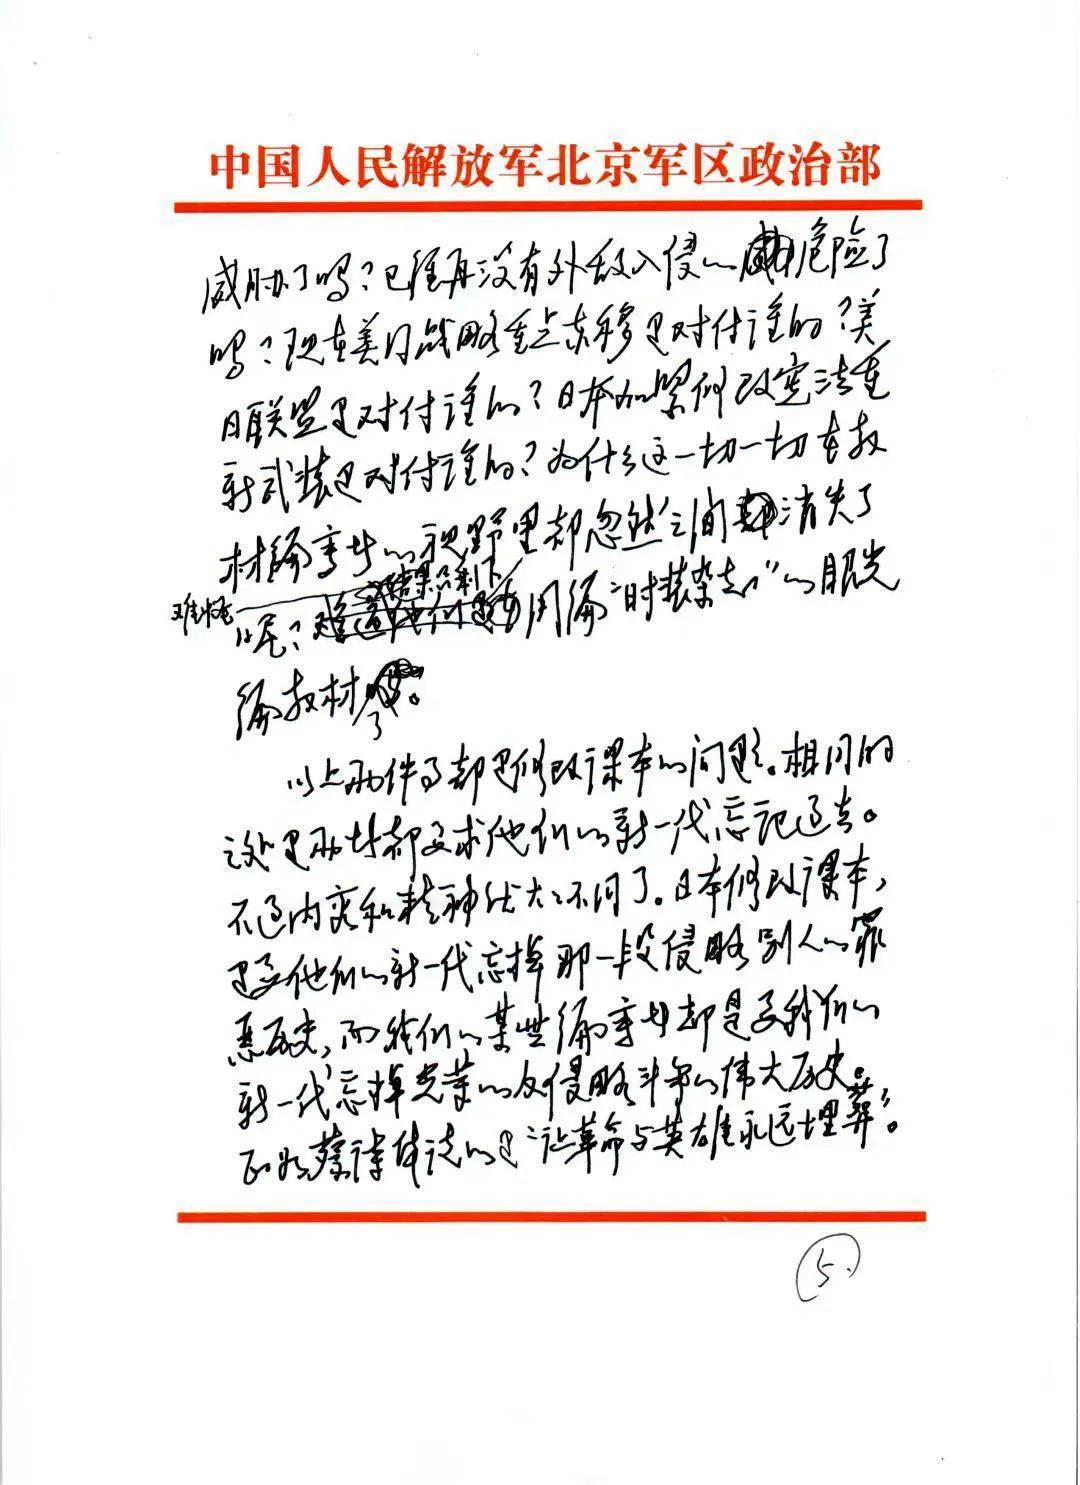 中国人民解放军北京军区政治部
威胁了吗?已经再没有外敌入侵的危险了
吗?现在美国战略重点东移是对付谁的?美
日联盟是对付谁的?日本加紧修改宪法重
新武装是对付谁的?为什么这一切一切在教
材编审者的视野里都忽然之间消失了
结果只剩下
难怪
呢?用编“时装杂志”的眼光
编教材了。
以上两件事都是修改课本的问题。相同的
之处是两者都要求他们的新一代忘记过去。
不过内容和精神大大不同了。日本修改课本,
是要他们的新一代忘掉那一段侵略别人的罪
恶历史,而我们的某些编审者却是要我们的
新一代忘掉光荣的反侵略斗争的伟大历史。
正如蔡诗萍说的是“让革命与英雄永远埋葬”。
5.